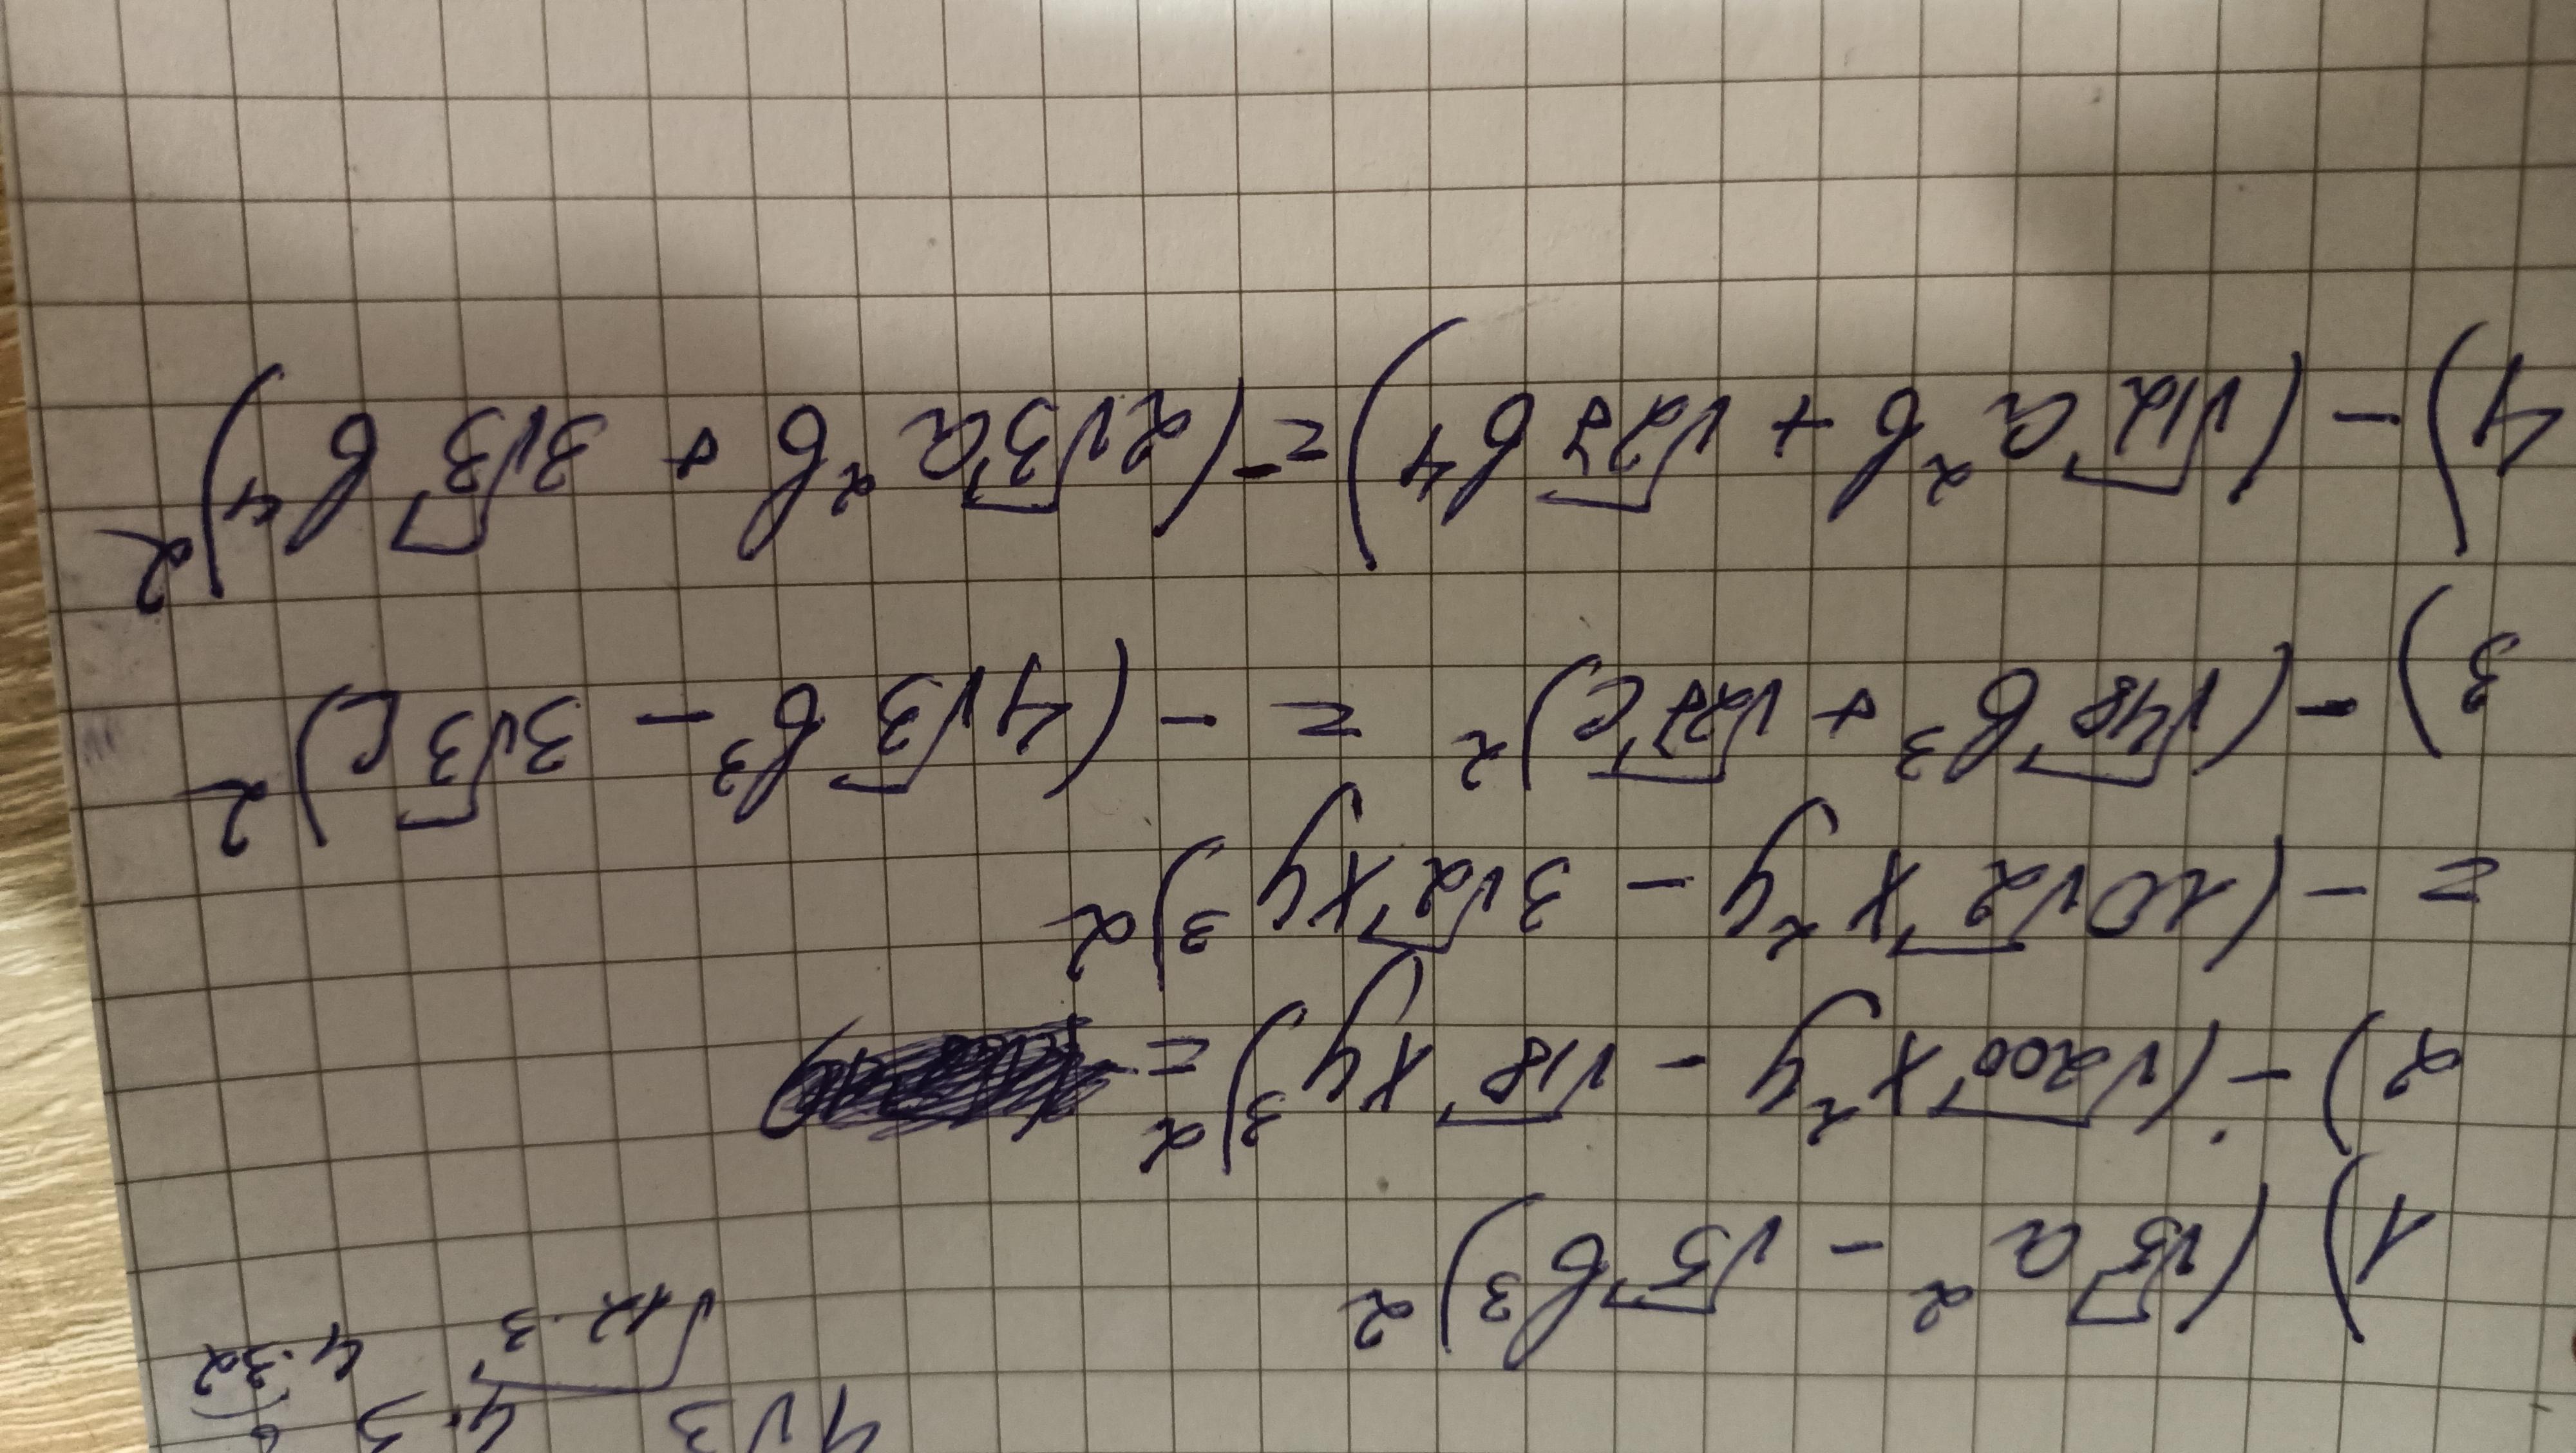 4√3 4·3
√12·3 4·32
1) (√5 a² - √5 b³)²
2) -(√200 x²y - √18 xy³)² =
= -(10√2 x²y - 3√2 xy³)²
3) -(√48 b³ + √27 c)² = -(4√3 b³ - 3√3 c)²
4) -(√12 a²b + √27 b⁴) = -(2√3 a²b + 3√3 b⁴)²